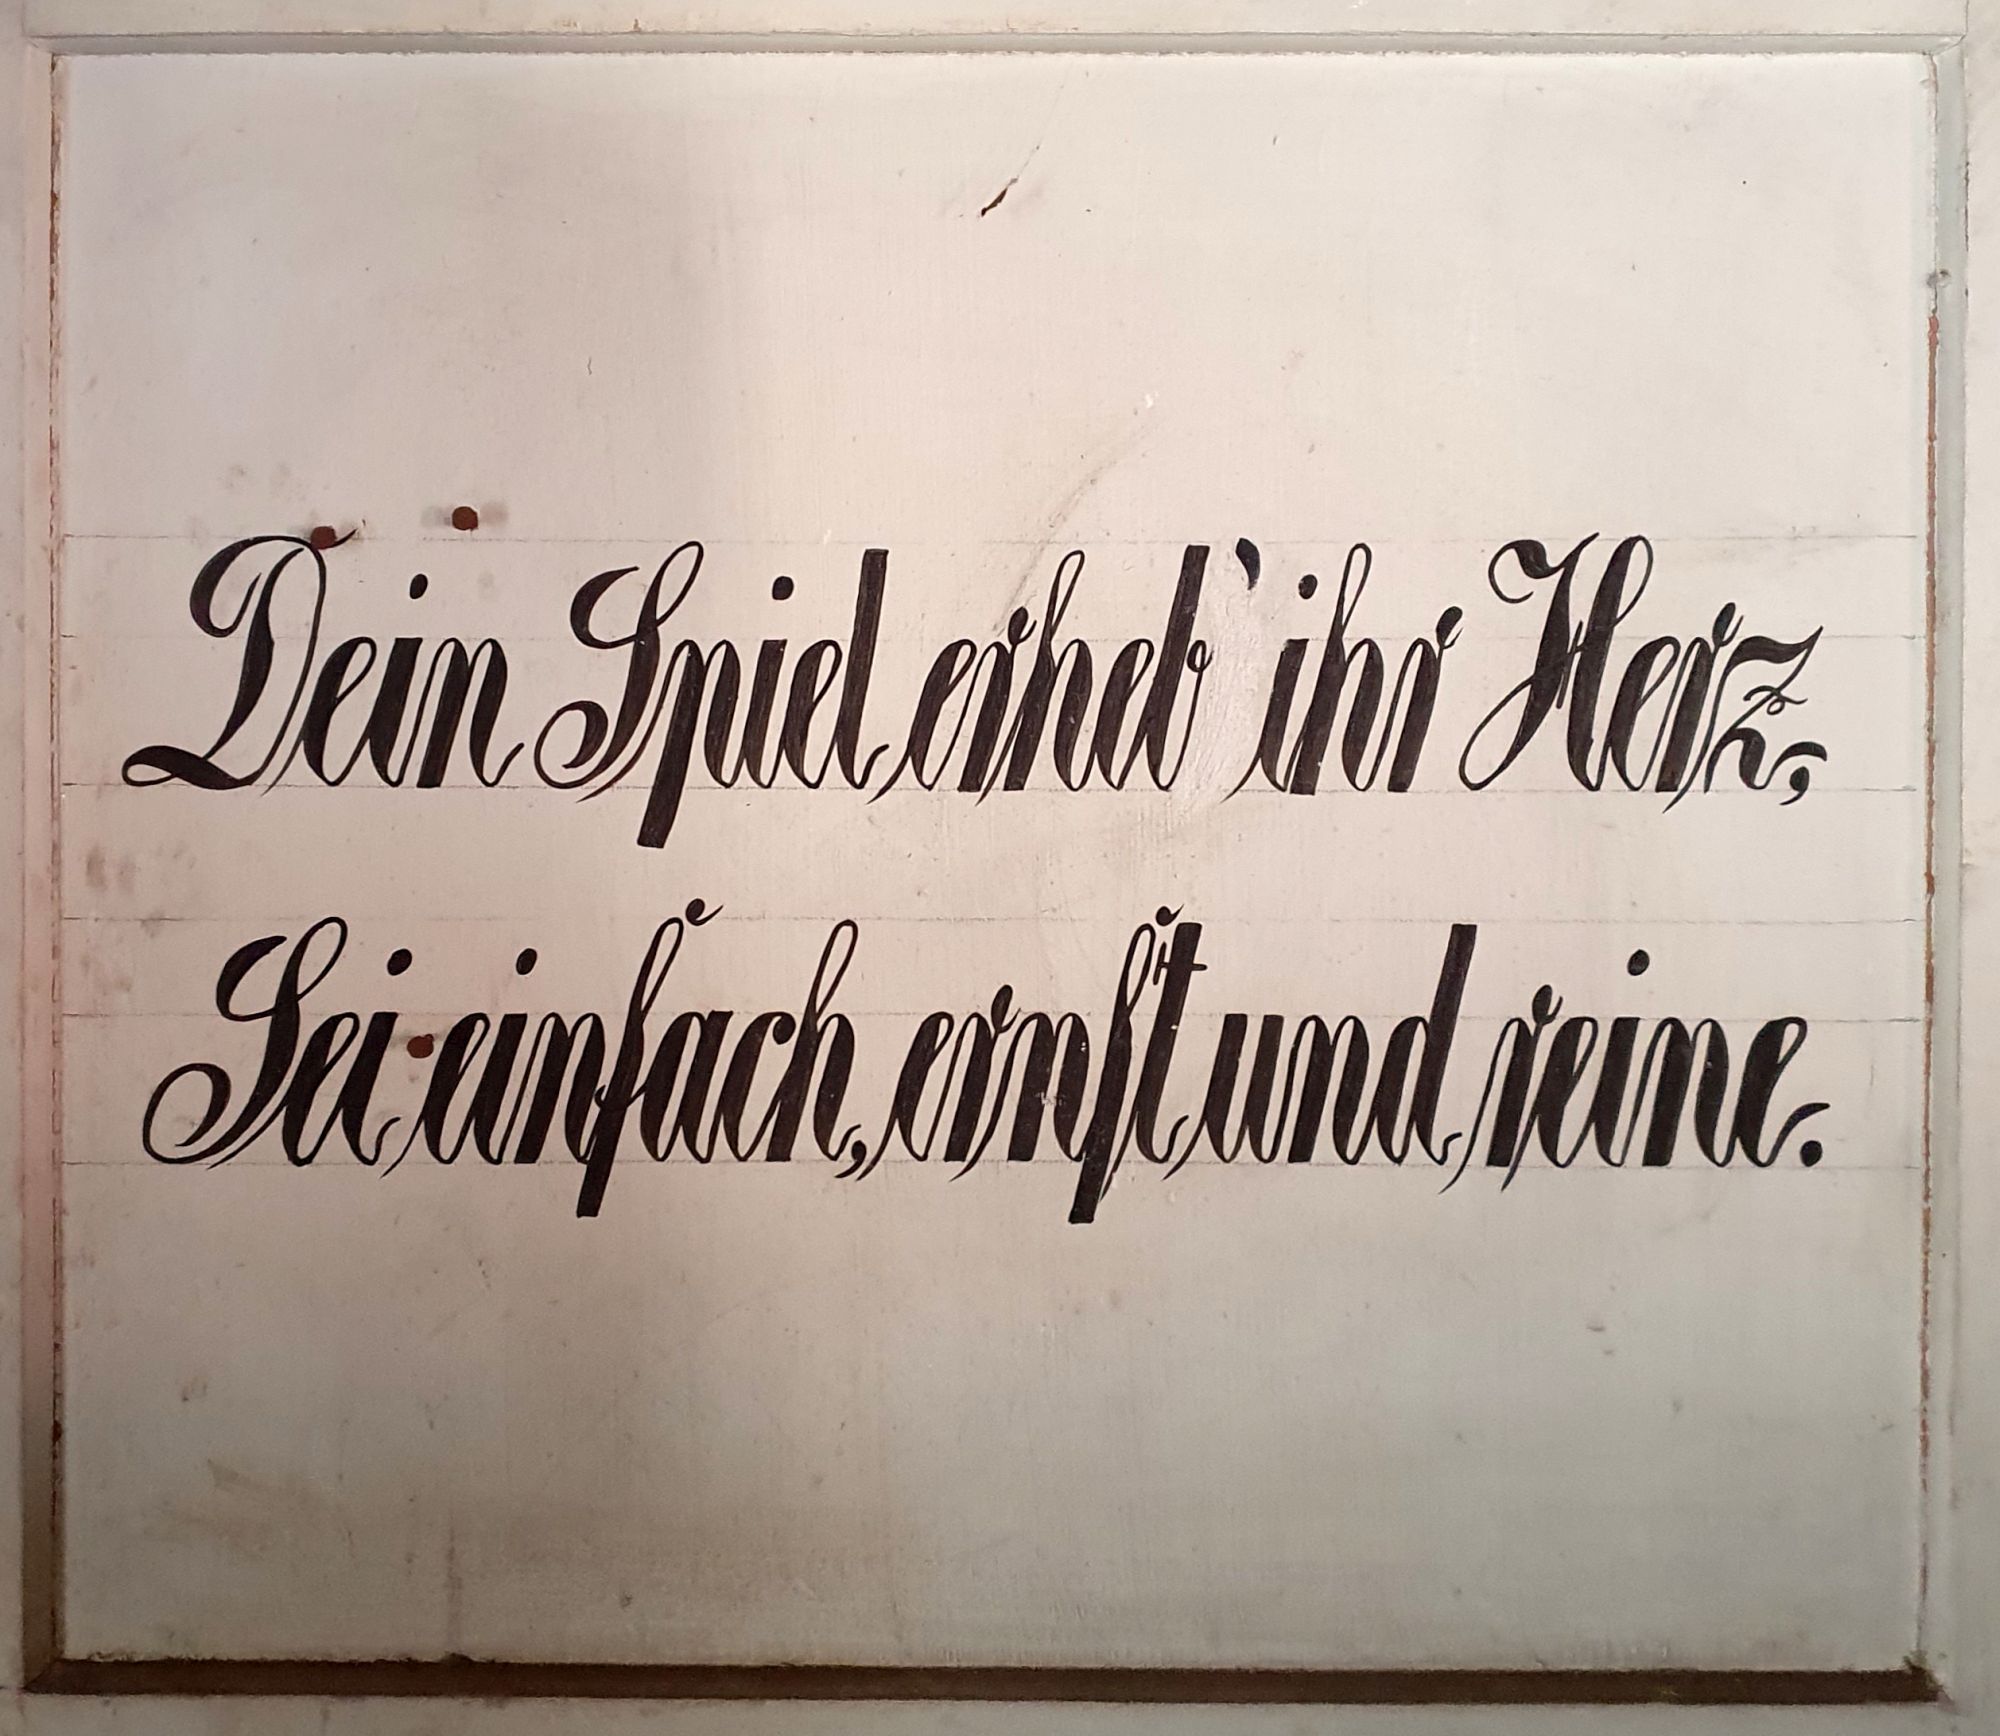 Dein Spiel erheb' ihr Herz,
Sei einfach, ernſt und reine.